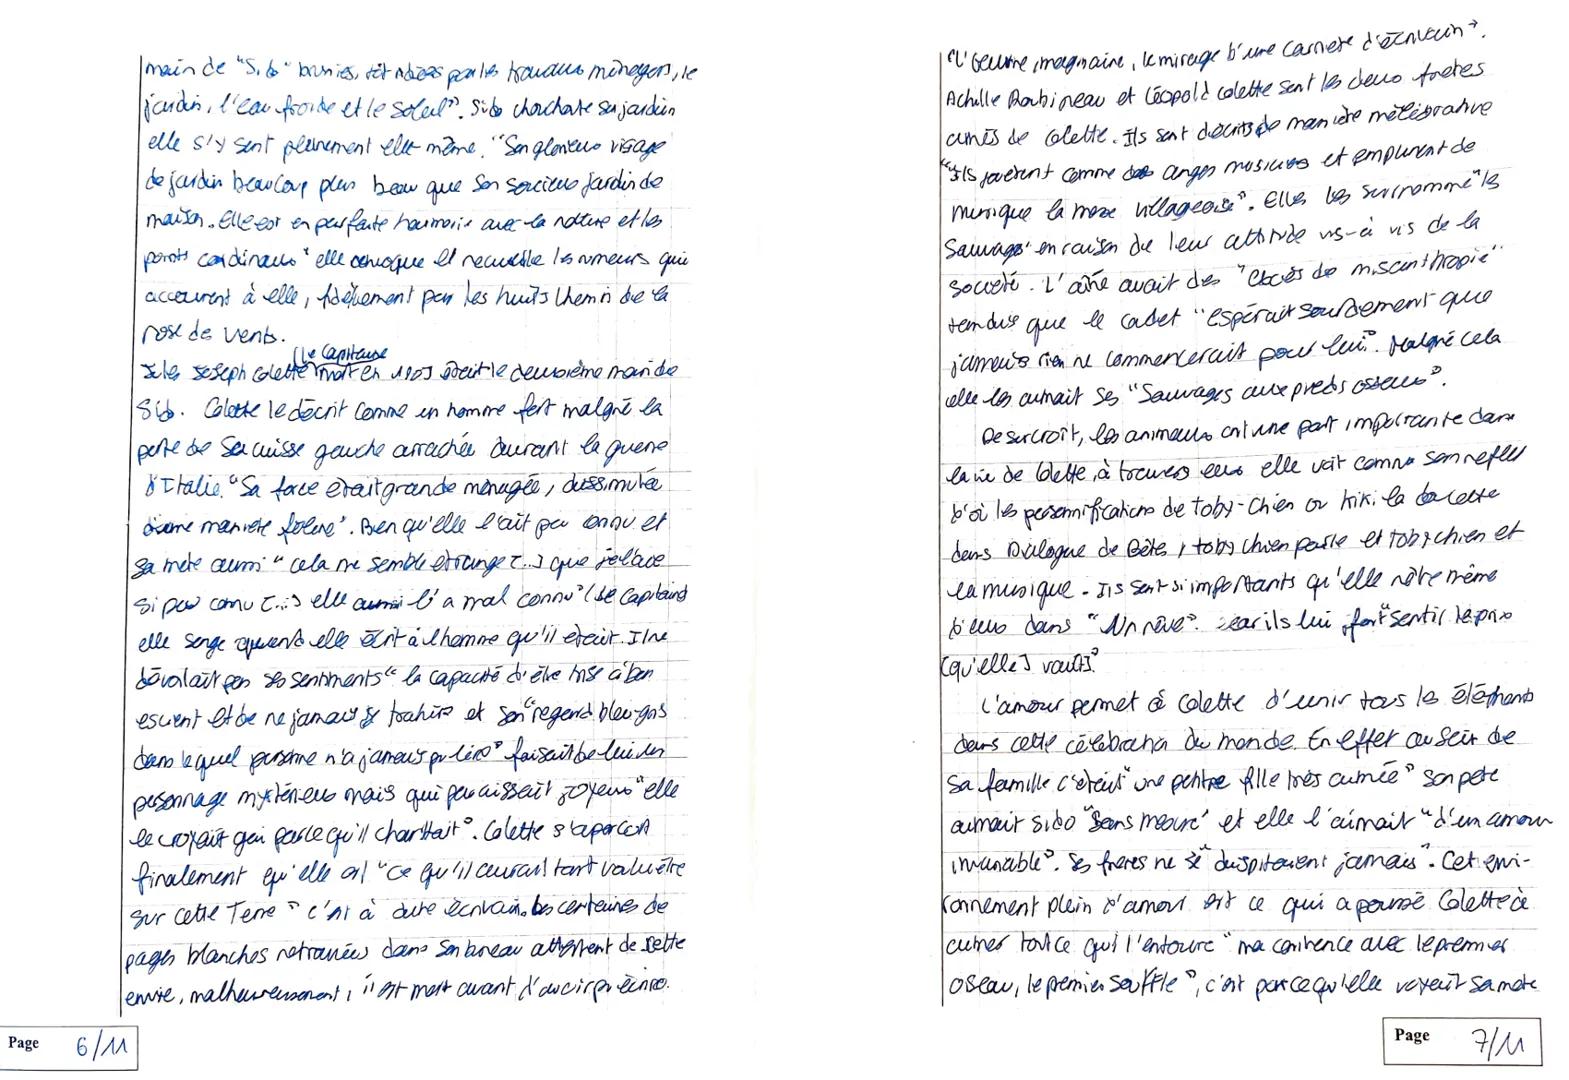 main de "Sido" brunies, tôt ridées par les travaux ménagers, le
jardin, l'eau froide et le soleil". Sido chouchoute son jardin
elle s'y sent pleinement elle même. "Son glorieux visage
de jardin beaucoup plus beau que son soucieux jardin de
maison. Elle est en parfaite harmonie avec la nature et les
points cardinaux "elle convoque et recueille les rumeurs qui
accourent à elle, fidèlement par les huits chemin de la
rose des vents.
(Le Capitaine
Jules Joseph Colette mort en 1905 était le deuxième mari de
Sido. Colette le décrit comme un homme fort malgré la
perte de sa cuisse gauche arrachée durant la guerre
d'Italie. "Sa force était grande ménagée, dissimulée
d'une manière féline". Bien qu'elle l'ait peu connu et
sa mère aussi "cela me semble étrange [...] que je l'ace
si peu connu [...] elle aussi l'a mal connu" (Le Capitaine)
elle songe quand elle écrit à l'homme qu'il était. Il ne
dévoilait pas ses sentiments "la capacité d'être triste à bon
escient et de ne jamais se trahir" et son "regard bleu-gris
dans lequel personne n'a jamais pu lire" faisait de lui un
personnage mystérieux mais qui paraissait joyeux "elle
le croyait gai parce qu'il chantait". Colette s'aperçoit
finalement qu'elle est "ce qu'il aurait tant voulu être
sur cette Terre" c'est à dire écrivain. Les centaines de
pages blanches retrouvées dans son bureau attestent de cette
envie, malheureusement, il est mort avant d'avoir pu écrire.
Page 6/11
"L'oeuvre imaginaire, le mirage d'une carrière d'écrivain".
Achille Robineau et Léopold Colette sont les deux frères
ainés de Colette. Ils sont décrits de manière méliorative
"Ils jouèrent comme des anges musiciens et emplirent de
musique la messe villageoise". Elles les surnomme "les
Sauvages" en raison de leur attitude vis-à vis de la
société. L'aîné avait des "excès de misanthropie"
tandis que le cadet "espérait sourdement que
jamais rien ne commencerait pour lui". Malgré cela
elle les aimait ses "Sauvages aux pieds osseux".
De surcroît, les animaux ont une part importante dans
la vie de Colette, à travers eux elle voit comme son reflet
d'où les personnifications de Toby-Chien ou Kiki la doucette
dans Dialogue de Bêtes, toby chien parle et toby chien et
la musique. Ils sont si importants qu'elle rêve même
d'eux dans "Un rêve". car ils lui font "sentir le prix
[qu'elle] vaut[s]"
L'amour permet à Colette d'unir tous les éléments
dans cette célébration du monde. En effet au sein de
sa famille c'était "une petite fille très aimée" son père
aimait Sido "sans mesure" et elle l'aimait "d'un amour
invariable". Ses frères ne se "disputaient jamais". Cet envi-
ronnement plein d'amour est ce qui a poussé Colette à
aimer tout ce qui l'entoure "ma connivence avec le premier
oiseau, le premier souffle", c'est parce qu'elle voyait sa mère
Page 7/11